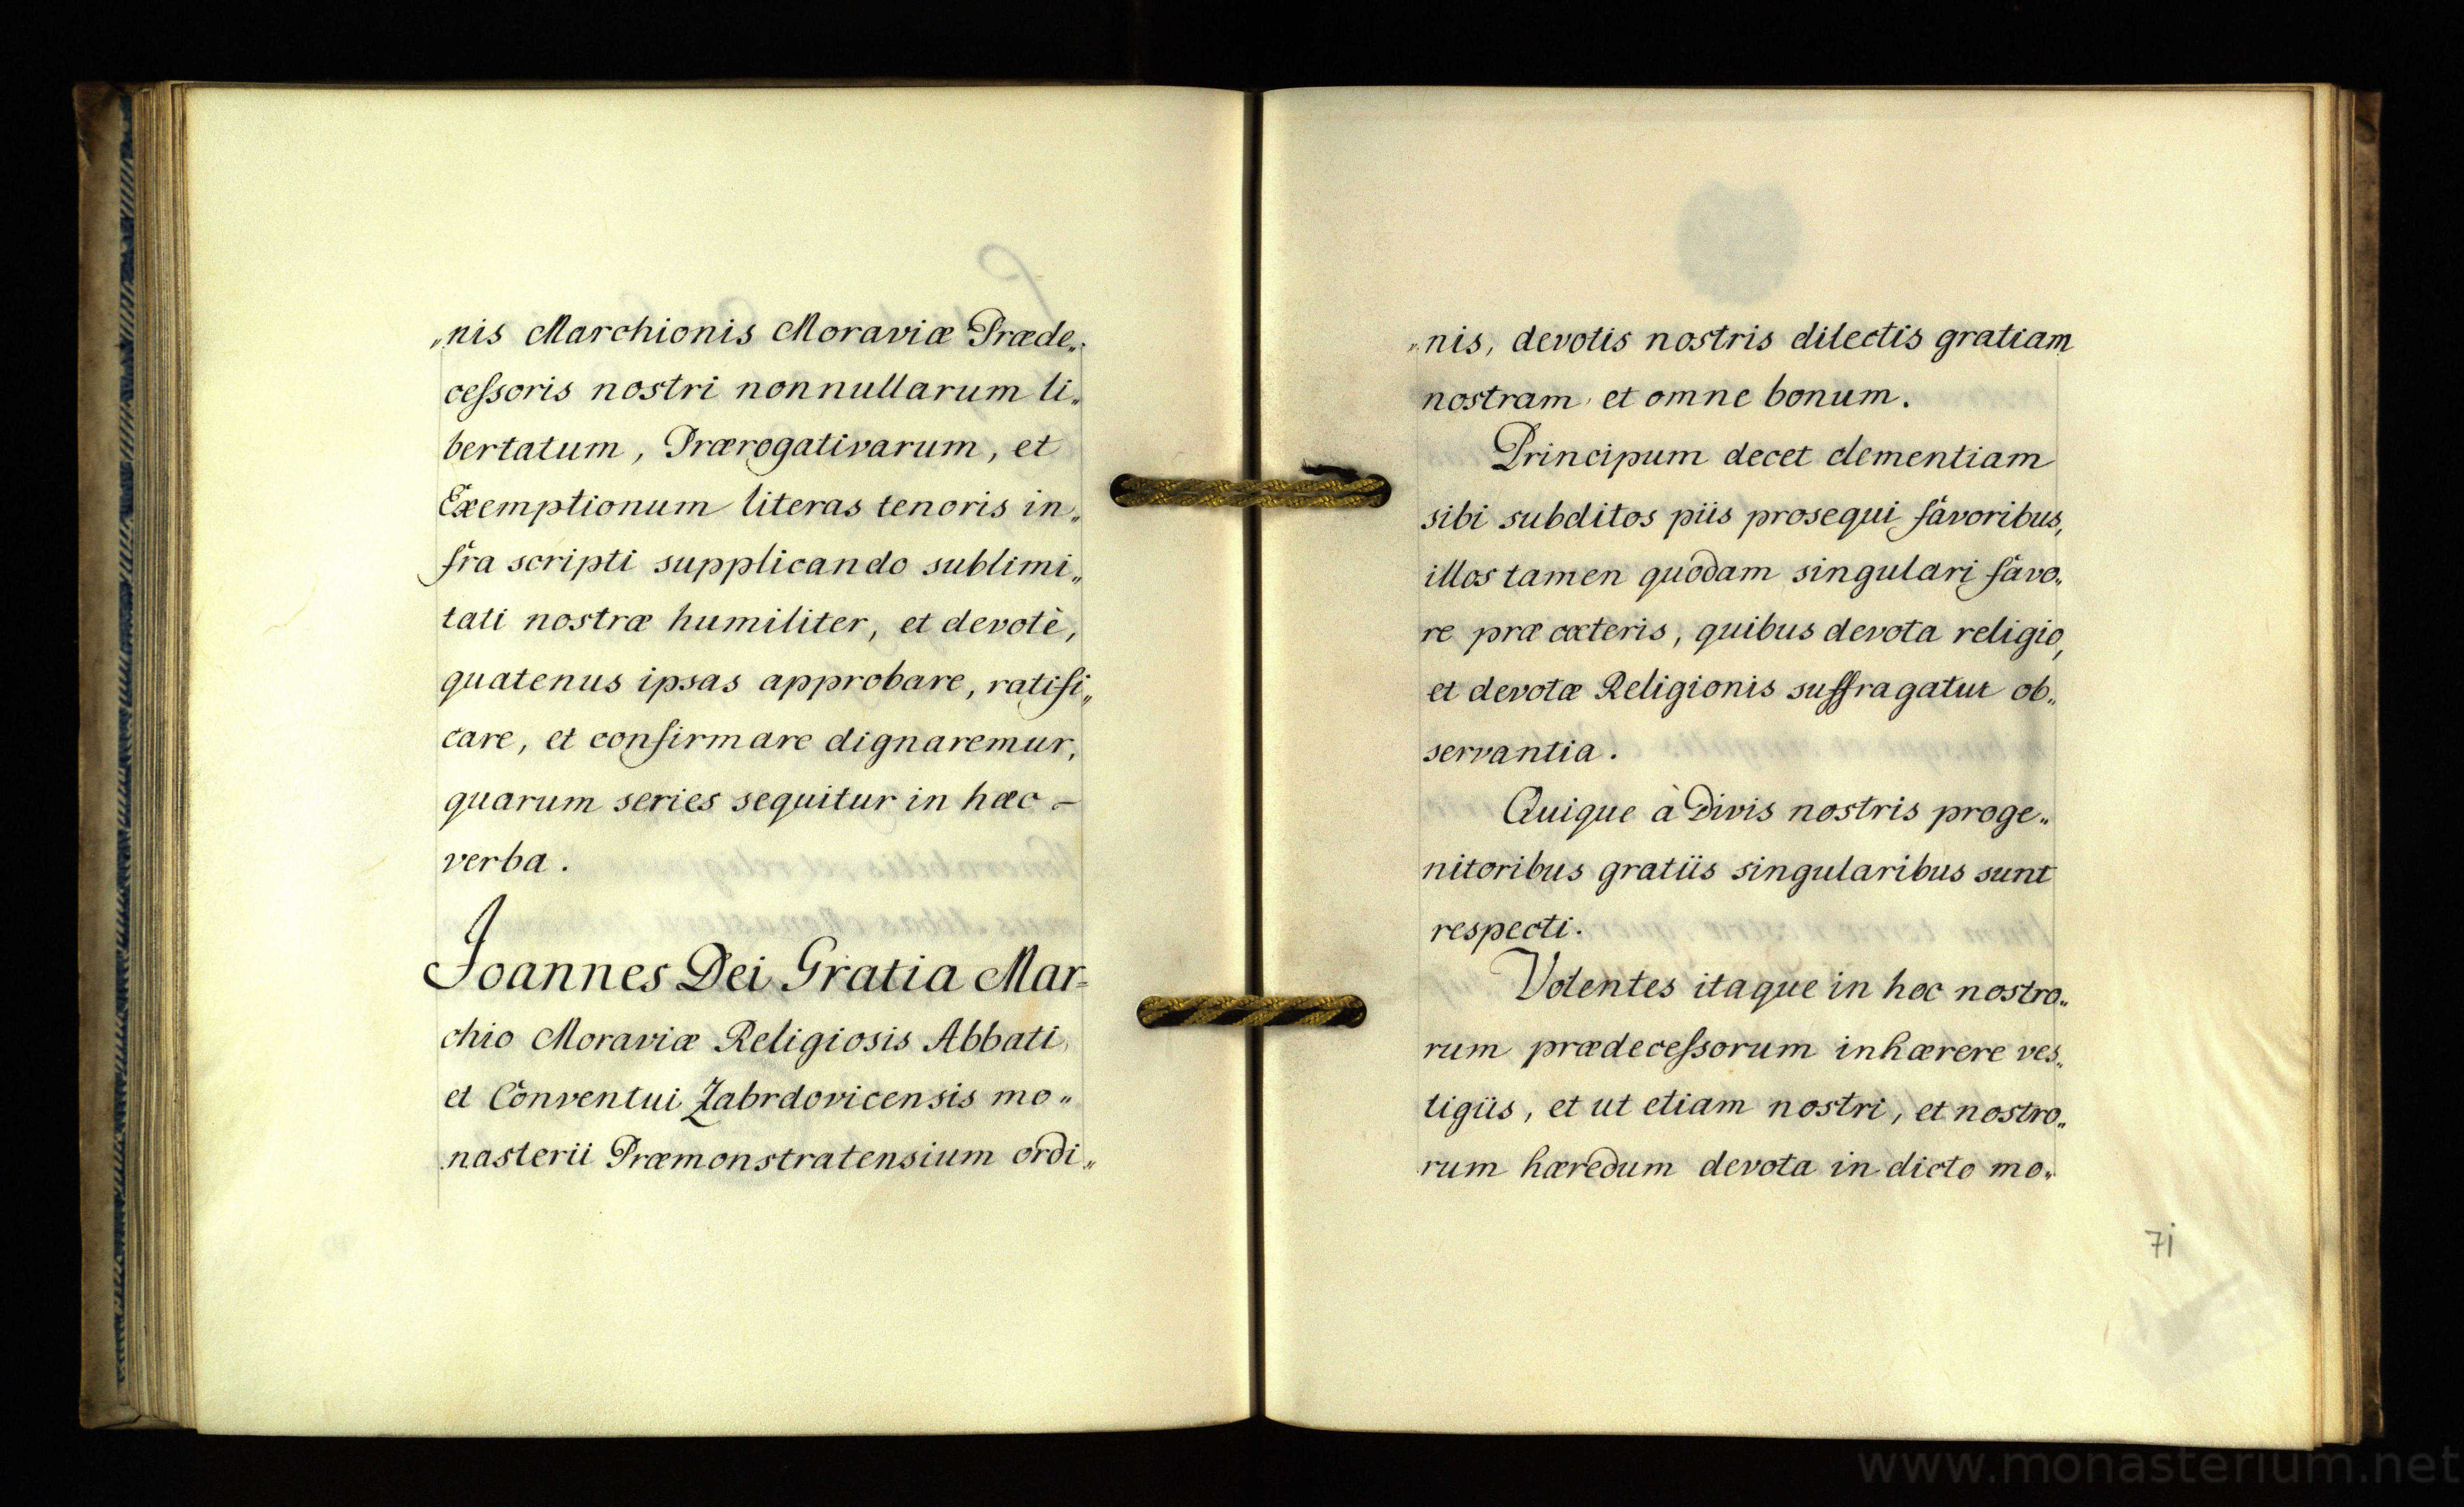 „nis Marchionis Moraviæ Præde„
ceſsoris nostri nonnullarum li„
bertatum, Prærogativarum, et
Exemptionum literas tenoris in„
fra scripti supplicando sublimi„
tati nostræ humiliter, et devotè,
quatenus ipsas approbare, ratifi„
care, et confirmare dignaremur,
quarum series sequitur in hæc –
verba.
Joannes Dei Gratia Mar=
chio Moraviæ Religiosis Abbati
et Conventui Zabrdovicensis mo„
nasterii Præmonstratensium ordi„
„nis, devotis nostris dilectis gratiam
nostram et omne bonum.
Principum decet clementiam
sibi subditos piis prosequi favoribus,
illos tamen quodam singulari favo„
re præ cæteris, quibus devota religio,
et devotæ Religionis suffragatur ob„
servantia.
Quique à Divis nostris proge„
nitoribus gratiis singularibus sunt
respecti.
Volentes itaque in hoc nostro„
rum prædeceſsorum inhærere ves„
tigiis, et ut etiam nostri, et nostro„
rum hæredum devota in dicto mo„
71
www.monasterium.net